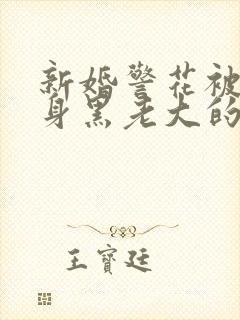 新婚警花被
身黑老大的
王寶廷